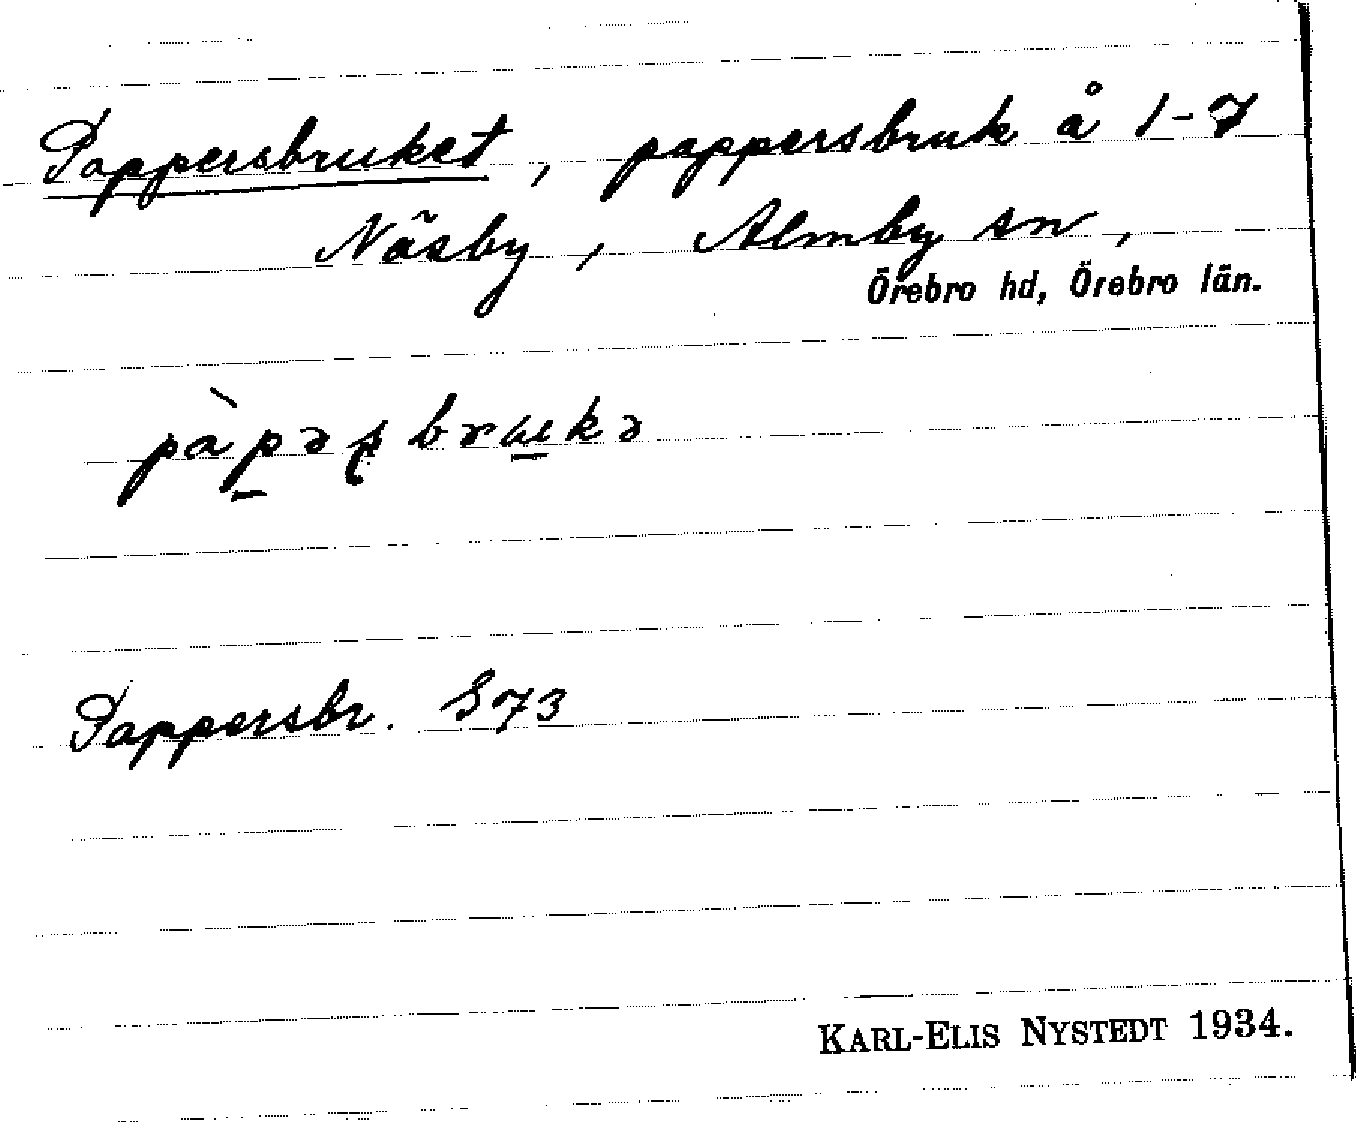 Pappersbruket, pappersbruk å 1-7
Näsby, Almby sn,
Örebro hd, Örebro län.
pàpəʂbrukə
Pappersbr. S73
KARL-ELIS NYSTEDT 1934.